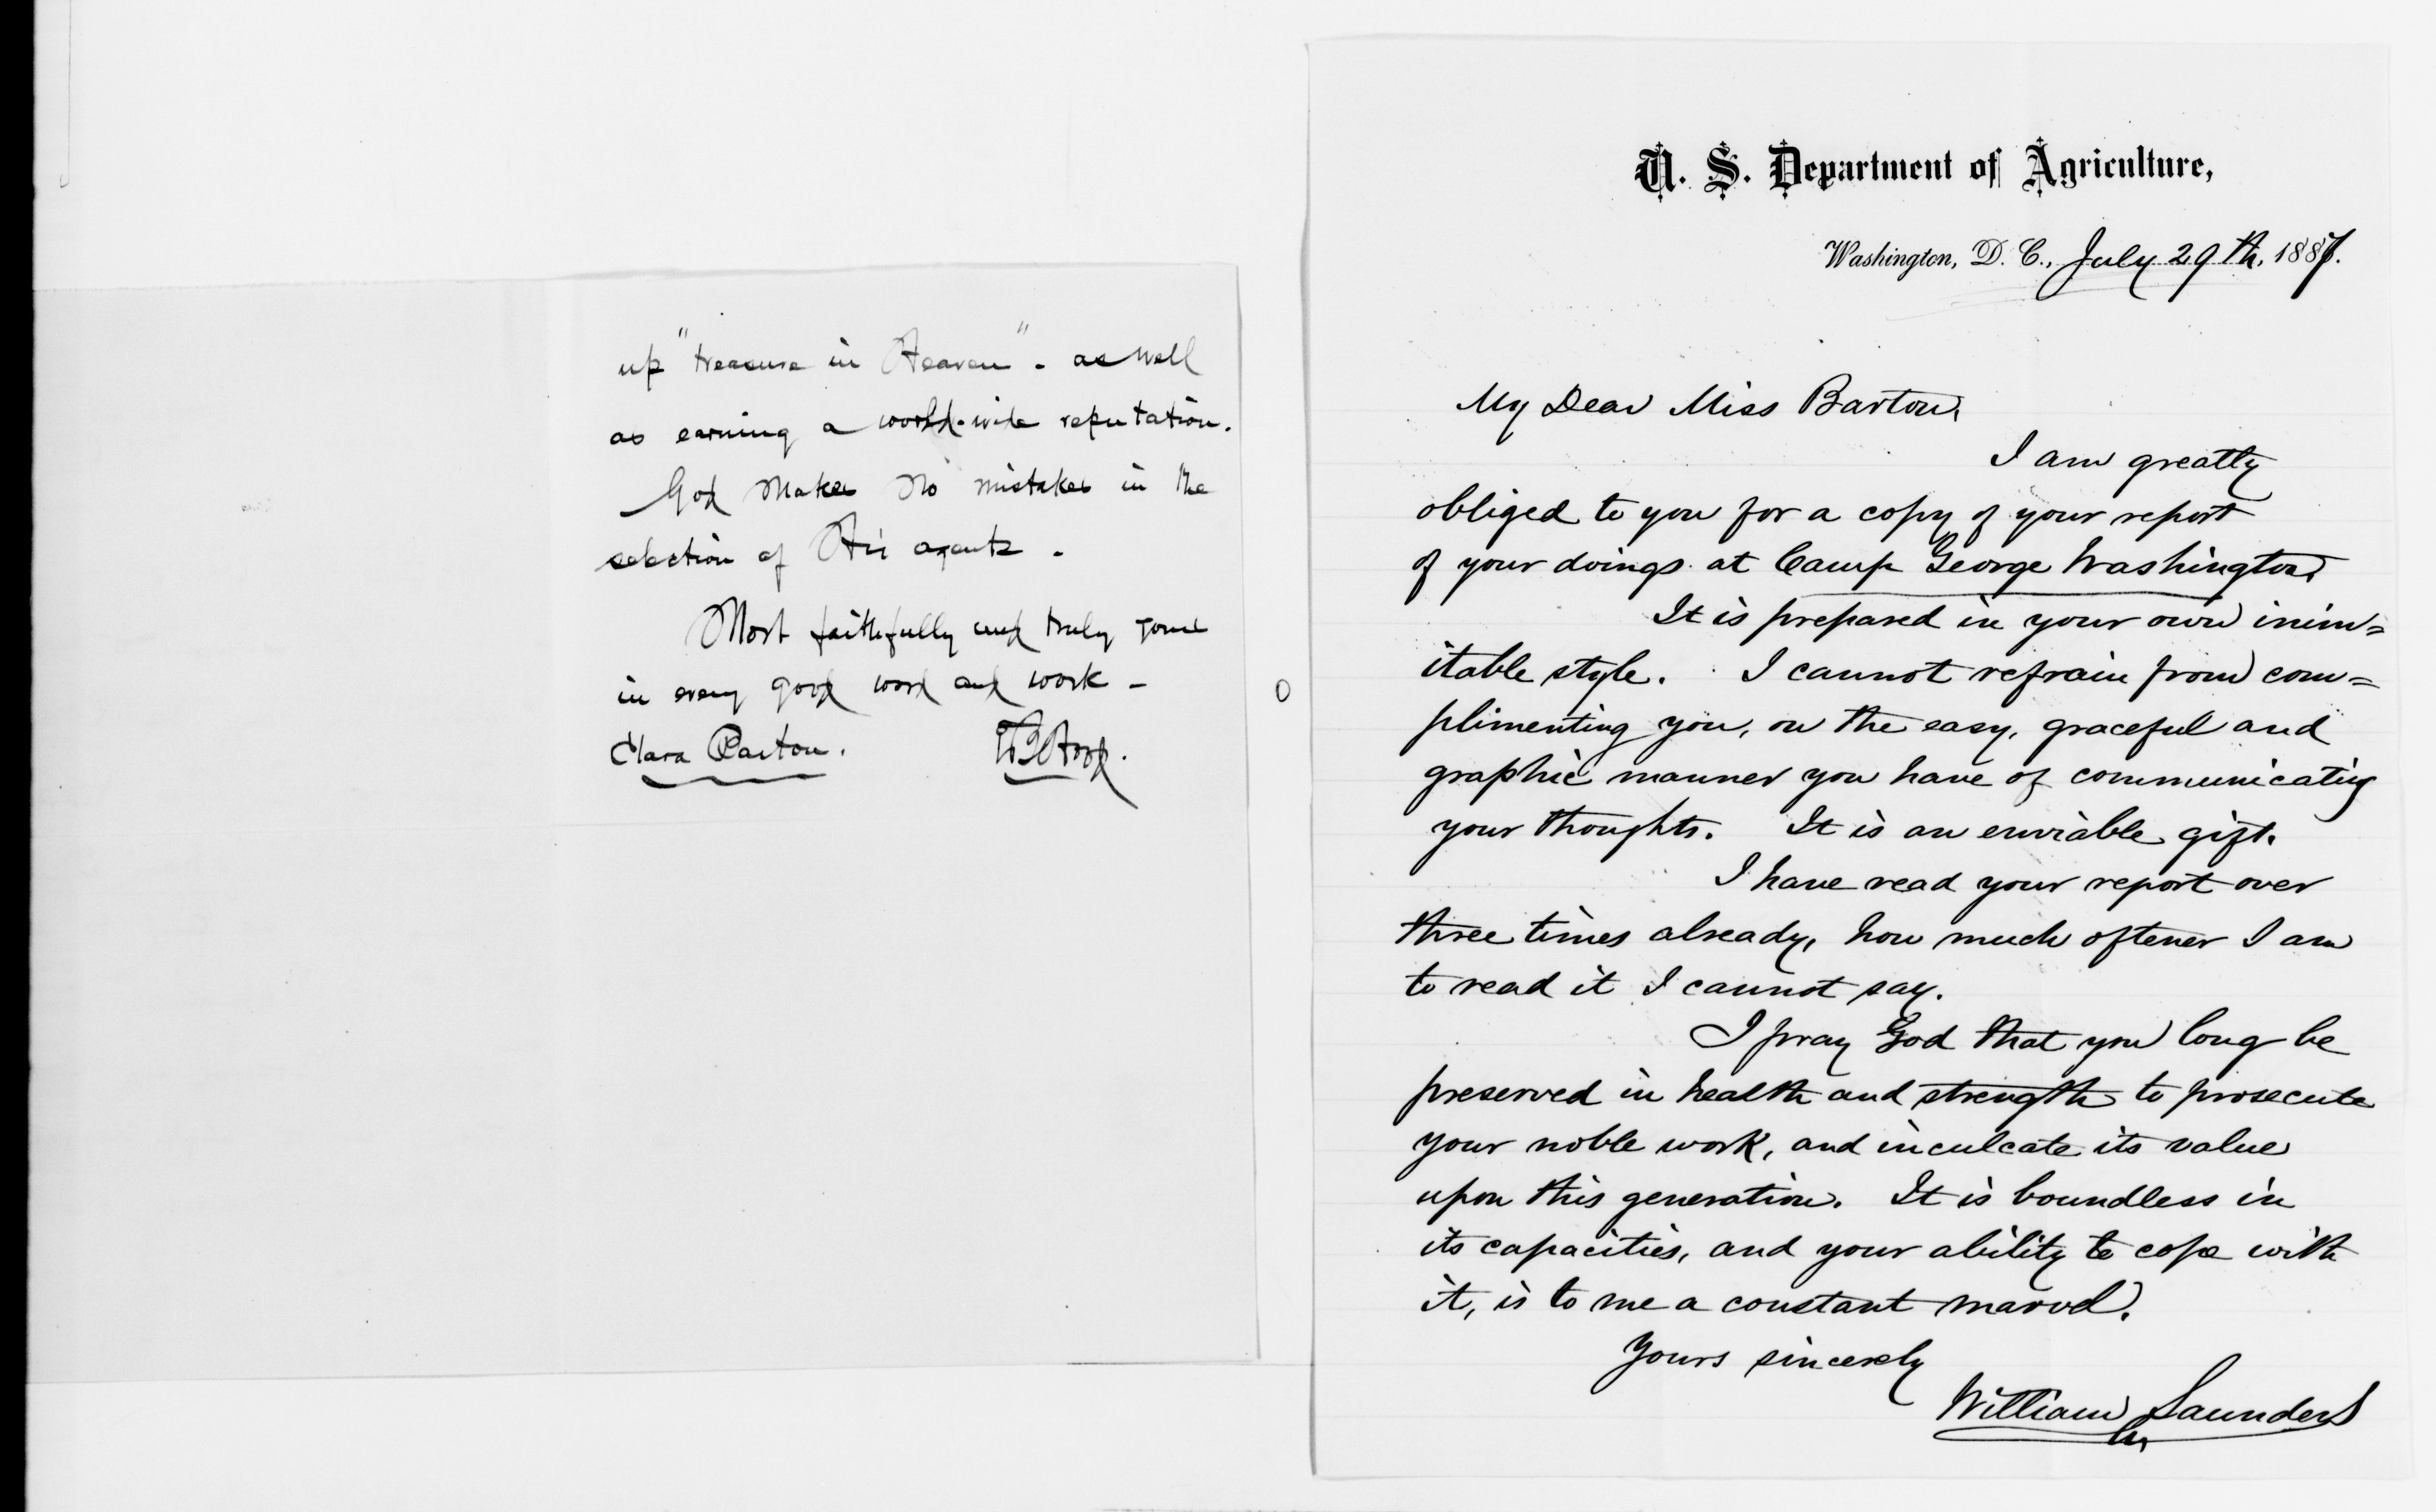 up "treasure in Heaven" - as well
as earning a world-wide reputation.
God makes no mistakes in the
selection of His agents -
Most faithfully and truly yours
in every good word and work -
Clara Barton.
U. S. Department of Agriculture,
Washington, D. C., July 29th, 1887.
My Dear Miss Barton,
I am greatly
obliged to you for a copy of your report
of your doings at Camp George Washington.
It is prepared in your own inim=
itable style. I cannot refrain from com=
plimenting you, on the easy, graceful and
graphic manner you have of communicating
your thoughts. It is an enviable gift.
I have read your report over
three times already, how much oftener I am
to read it I cannot say.
I pray God that you long be
preserved in health and strength to prosecute
your noble work, and inculcate its value
upon this generation. It is boundless in
its capacities, and your ability to cope with
it, is to me a constant marvel.
Yours sincerely
William Saunders